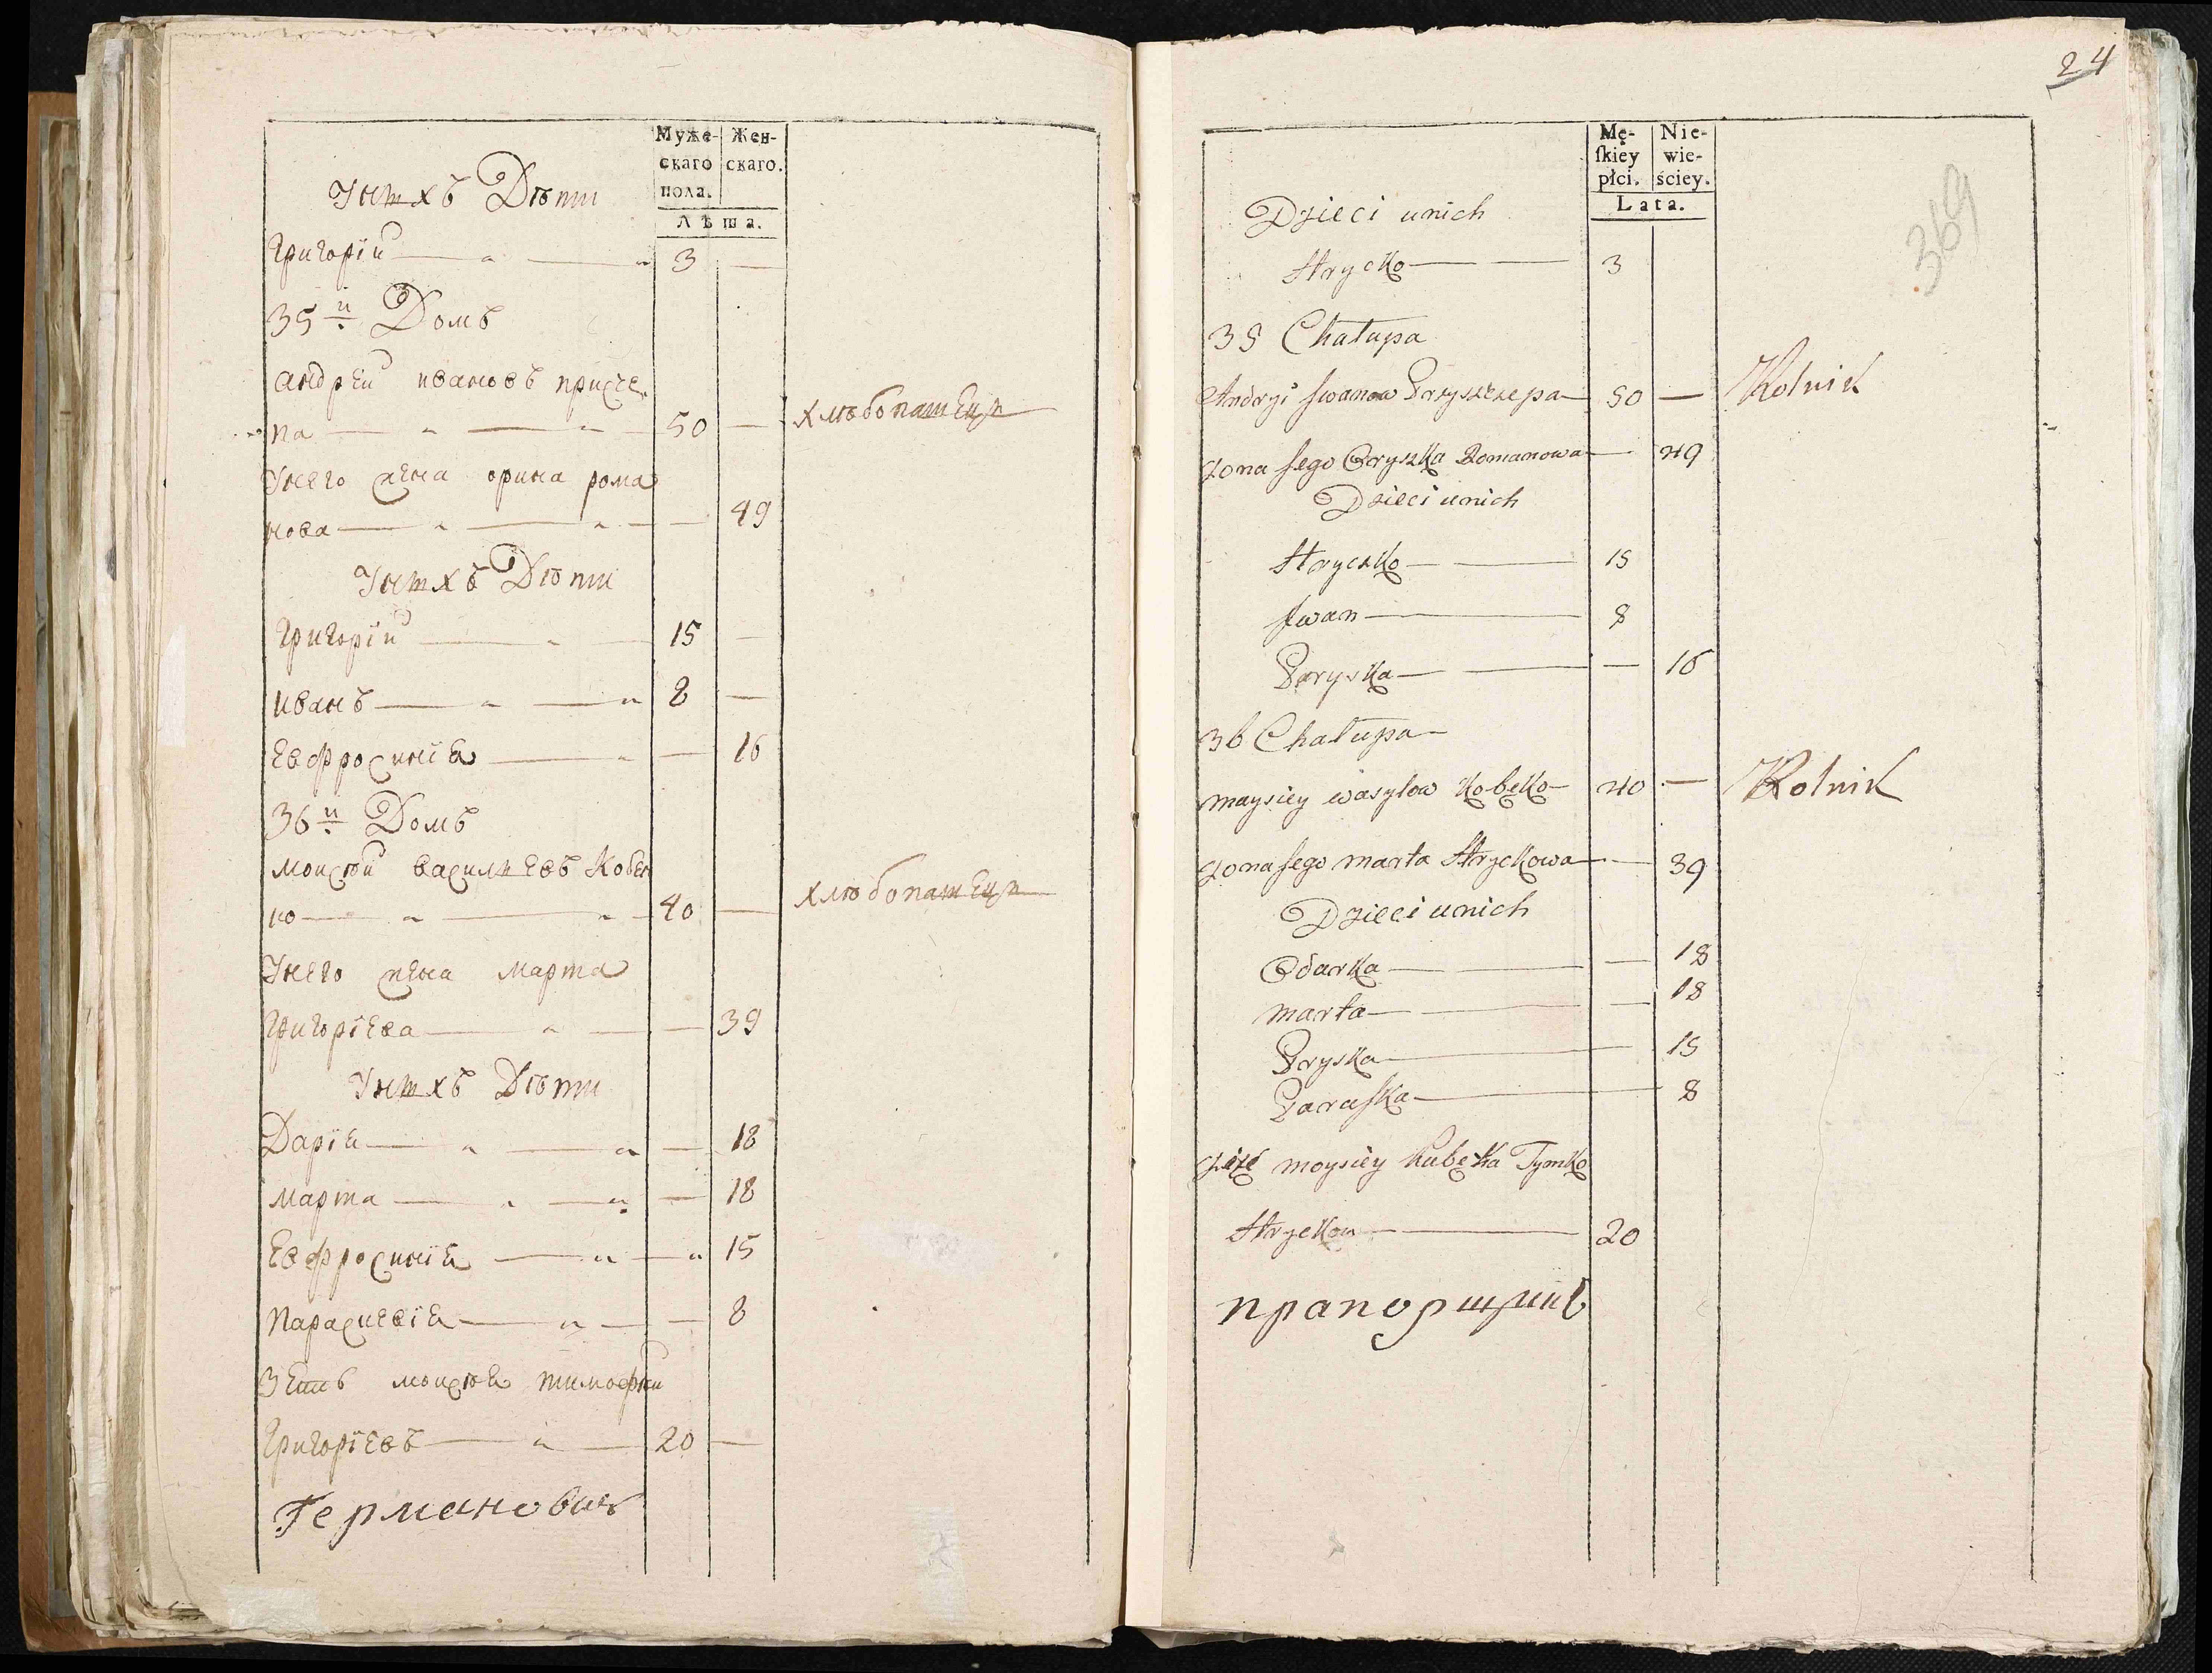 Муже-
скаго
пола.
Жен-
скаго.
Лѣта.
Унихъ Дѣти
Григорій 3
35й Домъ
Андрей ивановъ присче
па 50 хлѣбопашецъ
Унего жена орина рома
нова 49
Унихъ Дѣти
Григорій 15
иванъ 8
Евфросинія 16
36й Домъ
моисѣй василіевъ кобен
ко 40 хлѣбопашецъ
Унего жена марта
Григоріева 39
Унихъ Дѣти
Дарія 18
марта 18
Евфросинія 15
парасцевія 8
Зять моисѣя тимофѣй
Григоріевъ 20
Германович
24
369
Mę-
ſkiéy
płci.
Nie-
wie-
ściey.
Lata.
Dzieci unich
Hrycko 3
35 Chałupa
Andryi Jwanow Pryszczepa 50 Rolnik
zona Jego Oryszka Romanowa 49
Dzieci unich
Hryczko 15
Jwan 8
Pryska 16
36 Chałupa
maysiey wasylow Kobęko 40 Rolnik
zona Jego marta Hryckowa 39
Dzieci unich
Odarka 18
marta 18
Pryska 15
Paraſka 8
zięć moysiey Kubęka Tymko
Hryckow 20
прапорщикъ